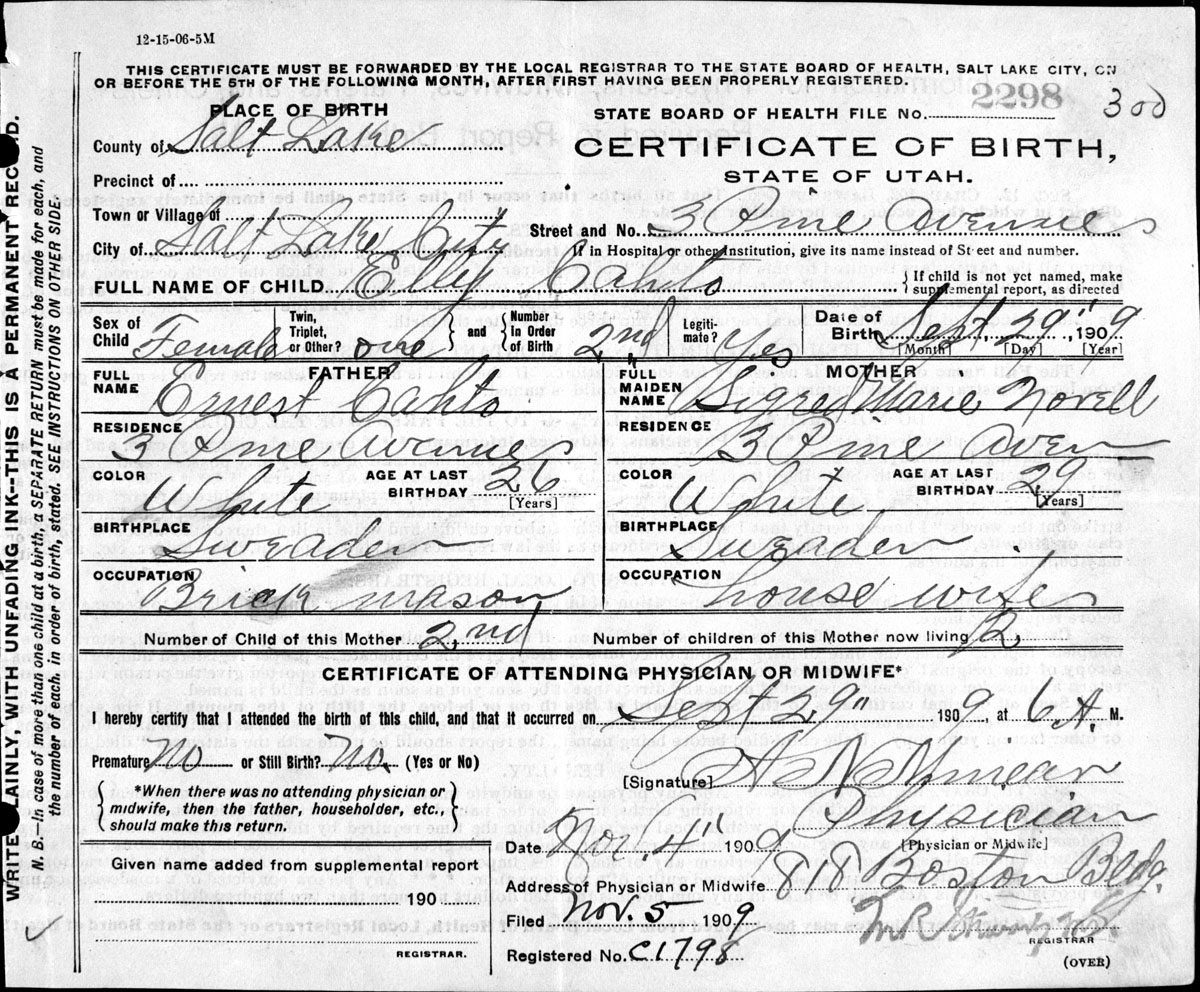 12-15-06-5M
THIS CERTIFICATE MUST BE FORWARDED BY THE LOCAL REGISTRAR TO THE STATE BOARD OF HEALTH, SALT LAKE CITY, ON
OR BEFORE THE 5TH OF THE FOLLOWING MONTH, AFTER FIRST HAVING BEEN PROPERLY REGISTERED.
PLACE OF BIRTH
STATE BOARD OF HEALTH FILE No. 2298 300
County of Salt Lake
CERTIFICATE OF BIRTH,
Precinct of
STATE OF UTAH.
Town or Village of
Street and No. 3 Pine Avenue
City of Salt Lake City
If in Hospital or other Institution, give its name instead of Street and number.
FULL NAME OF CHILD Elly Cahto
If child is not yet named, make
supplemental report, as directed
Sex of Child Female
Twin, Triplet, or Other? one
and
Number In Order of Birth 2nd
Legitimate? Yes
Date of Birth Sept. 29", 1909
[Month] [Day] [Year]
FATHER
FULL NAME Ernest Cahto
RESIDENCE 3 Pine Avenue
COLOR White
AGE AT LAST BIRTHDAY 26
[Years]
BIRTHPLACE Sweaden
OCCUPATION Brick mason
MOTHER
FULL MAIDEN NAME Sigred Marie Novell
RESIDENCE 3 Pine Aven
COLOR White
AGE AT LAST BIRTHDAY 29
[Years]
BIRTHPLACE Sweaden
OCCUPATION house wife
Number of Child of this Mother 2nd
Number of children of this Mother now living 2
CERTIFICATE OF ATTENDING PHYSICIAN OR MIDWIFE*
I hereby certify that I attended the birth of this child, and that it occurred on Sept 29" 1909, at 6 A. M.
Premature? No or Still Birth? No. (Yes or No)
[Signature]
*When there was no attending physician or
midwife, then the father, householder, etc.,
should make this return.
Physician
[Physician or Midwife]
Date Nov 4" 1909
Address of Physician or Midwife 818 Boston Bldg.
Given name added from supplemental report
190
REGISTRAR.
Filed Nov. 5 1909
REGISTRAR
Registered No. C1798
(OVER)
WRITE PLAINLY, WITH UNFADING INK--THIS IS A PERMANENT RECORD.
N. B.--In case of more than one child at a birth, a SEPARATE RETURN must be made for each, and
the number of each, in order of birth, stated. SEE INSTRUCTIONS ON OTHER SIDE.